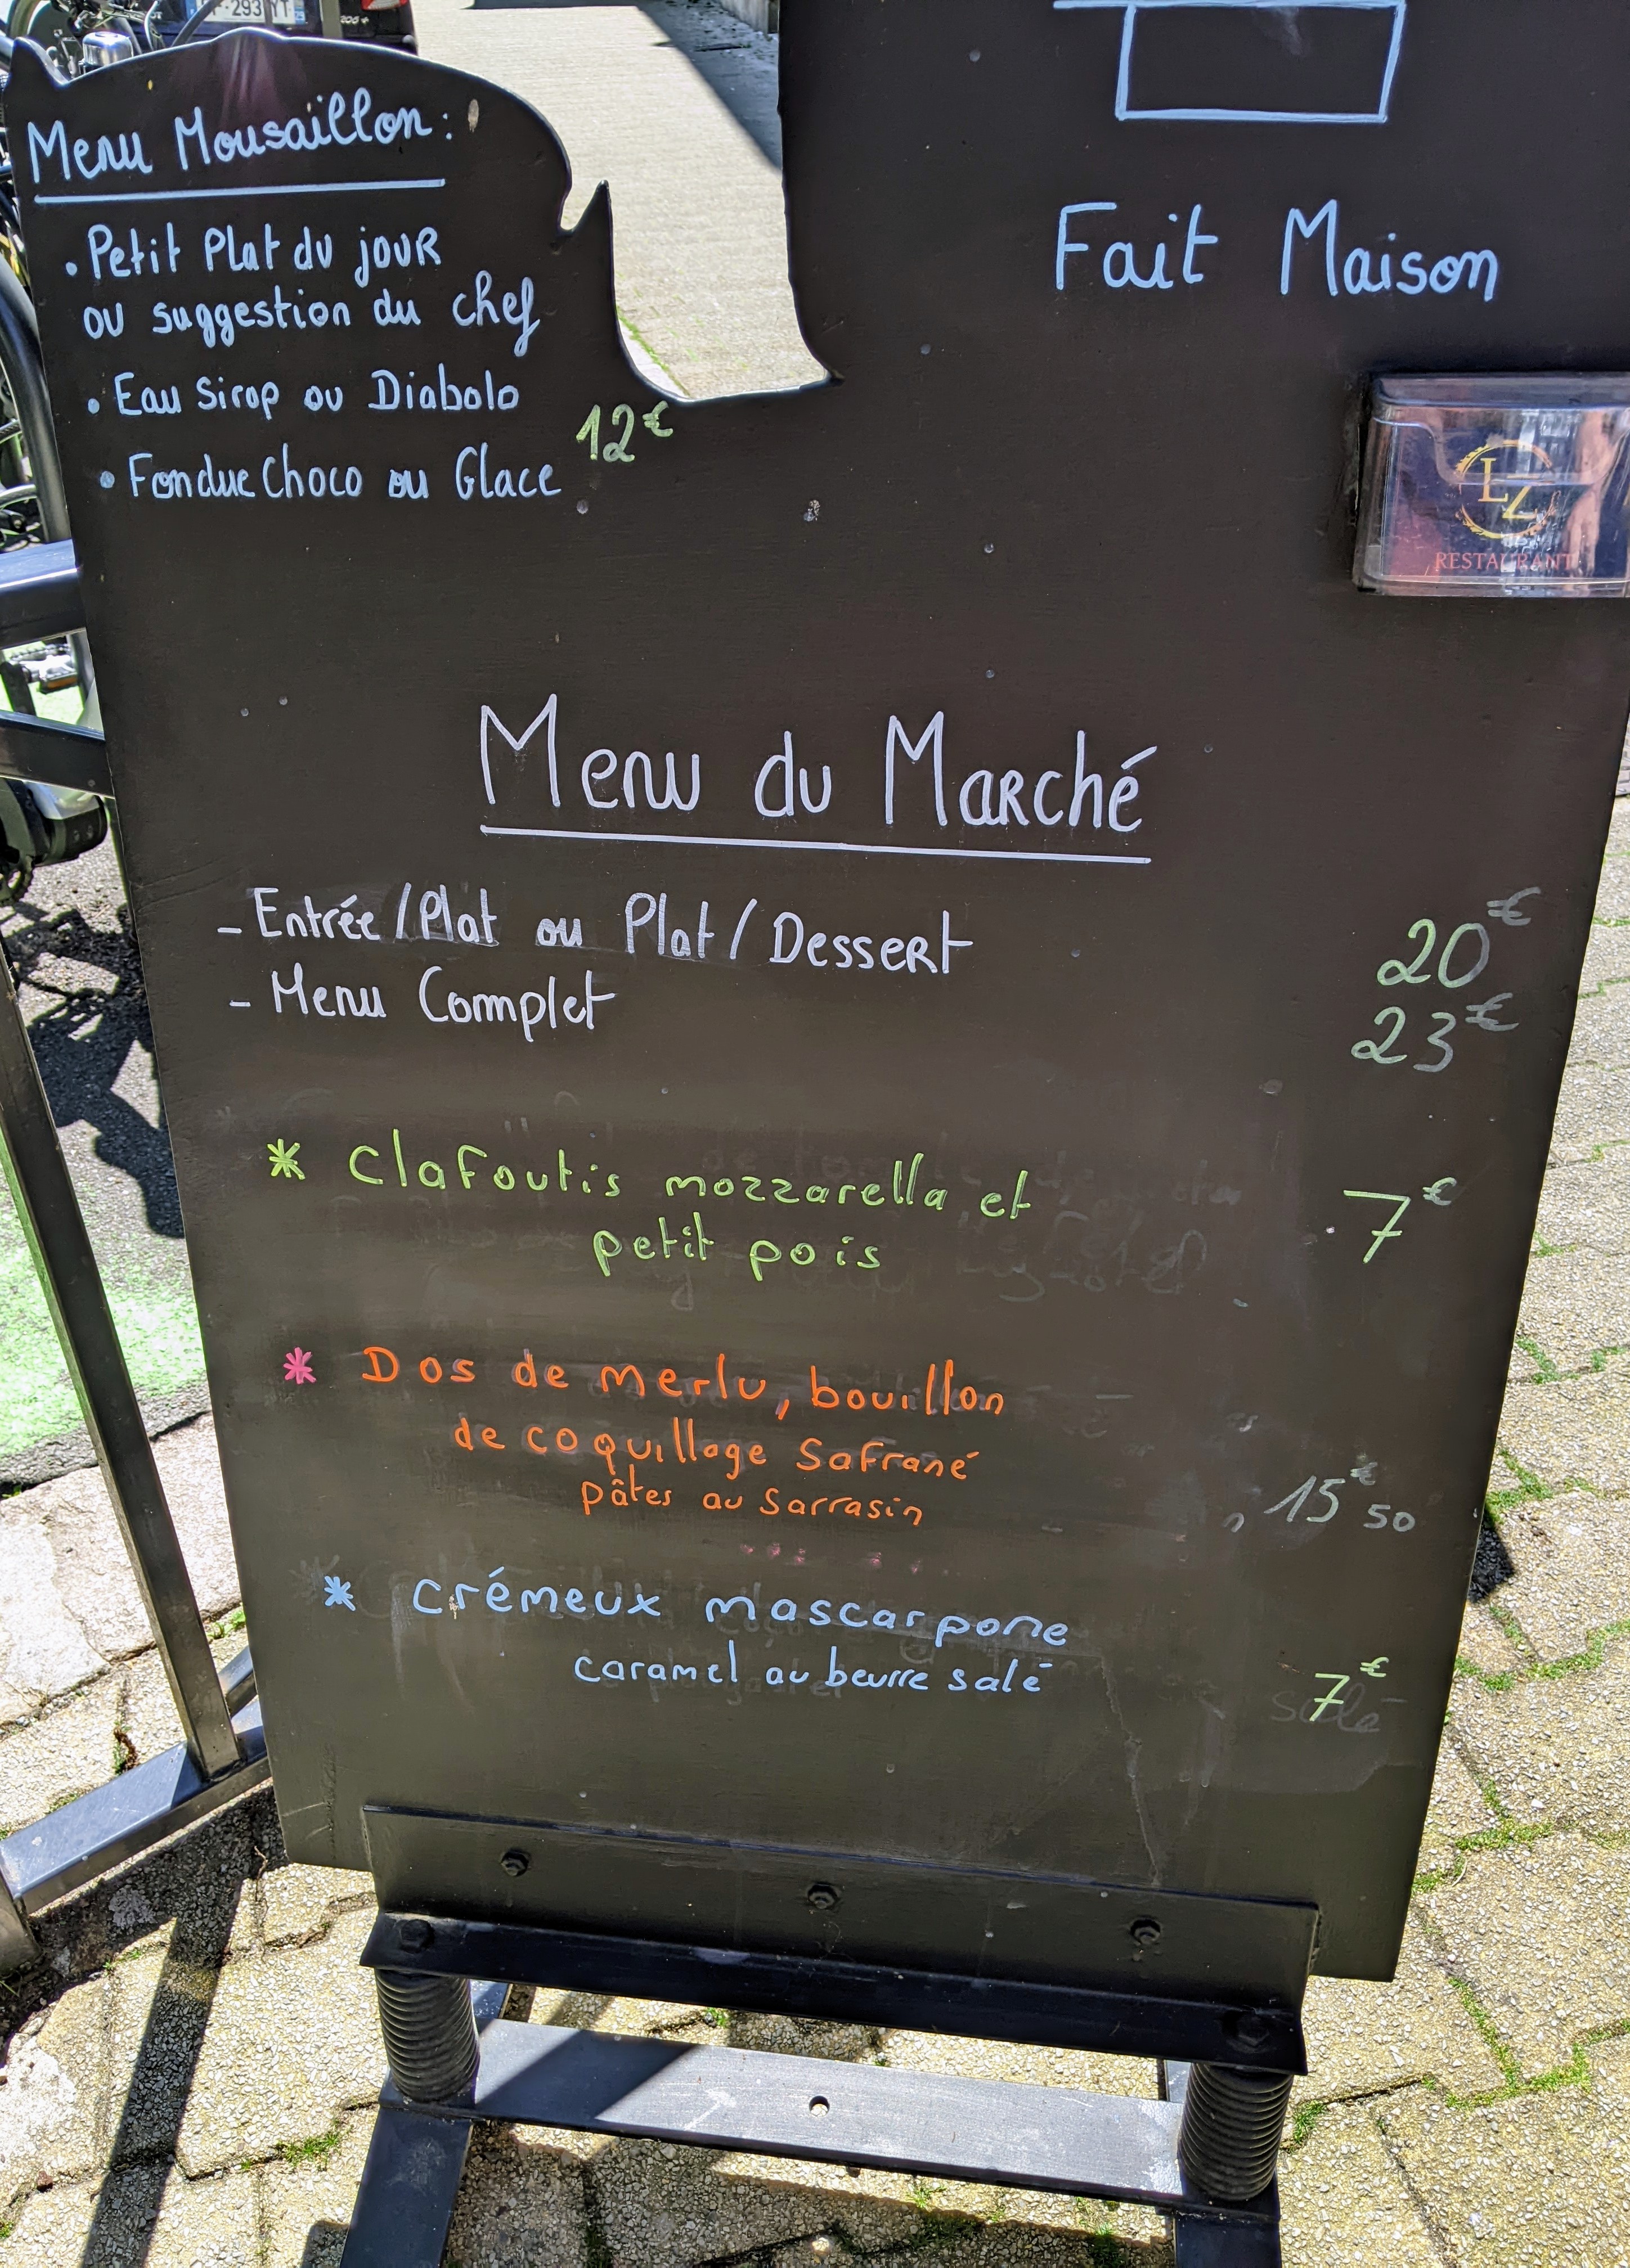 293 YT
206+
Menu Mousaïllon :
• Petit Plat du jour
ou suggestion du chef
• Eau Sirop ou Diabolo
• Fondue Choco ou Glace
12€
Fait Maison
LZ
RESTAURANT
Menu du Marché
- Entrée/Plat ou Plat/Dessert 20€
- Menu Complet 23€
* Clafoutis mozzarella et
petit pois 7€
* Dos de merlu, bouillon
de coquillage Safrané
pâtes au Sarrasin 15€50
* crémeux mascarpone
caramel au beurre salé 7€
salé